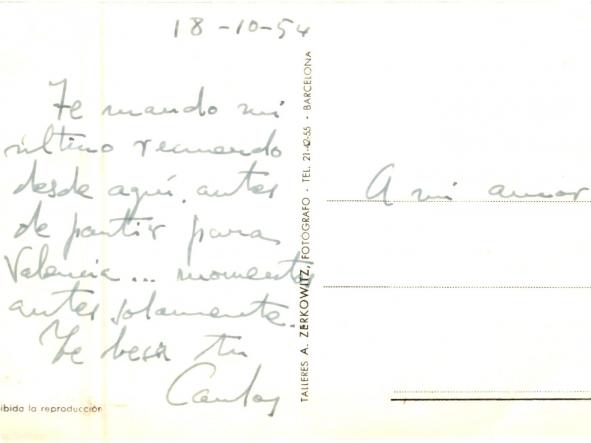 18-10-54
Te mando mi
último recuerdo
desde aquí, antes
de partir para
Valencia... momentos
antes solamente.
Te besa tu
Carlos
ibida la reproducción
TALLERES A. ZERKOWITZ, FOTOGRAFO · TEL. 21-42-55 · BARCELONA
A mi amor